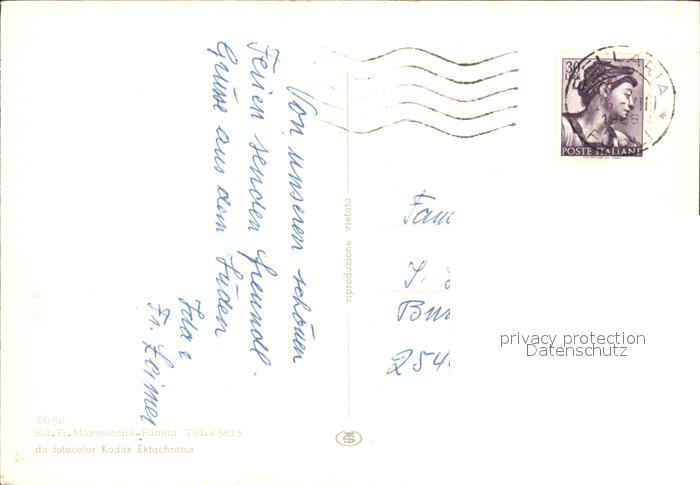 Von unseren schönen
Ferien senden freundl.
Grüsse aus dem Süden
Ida &
Fr.
riproduzione vietata
30
LIRE
BELLARIA
POSTE ITALIANE
Fam
Bur
254
privacy protection
Datenschutz
6652
Ed.B.Marcaccini-Rimini Tel.25815
da fotocolor Kodak Ektachrome